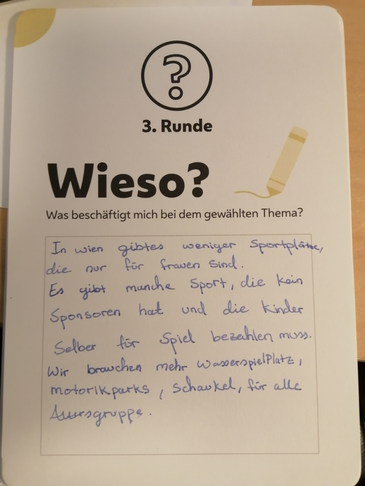 ?
3. Runde
Wieso?
Was beschäftigt mich bei dem gewählten Thema?
In wien gibtes weniger Sportplätze,
die nur für frauen sind.
Es gibt manche Sport, die kein
Sponsoren hat und die Kinder
Selber för Spiel bezahlen muss.
Wir brauchen mehr WasserspielPlatz,
motorikparks, Schaukel, für alle
Altersgruppe.